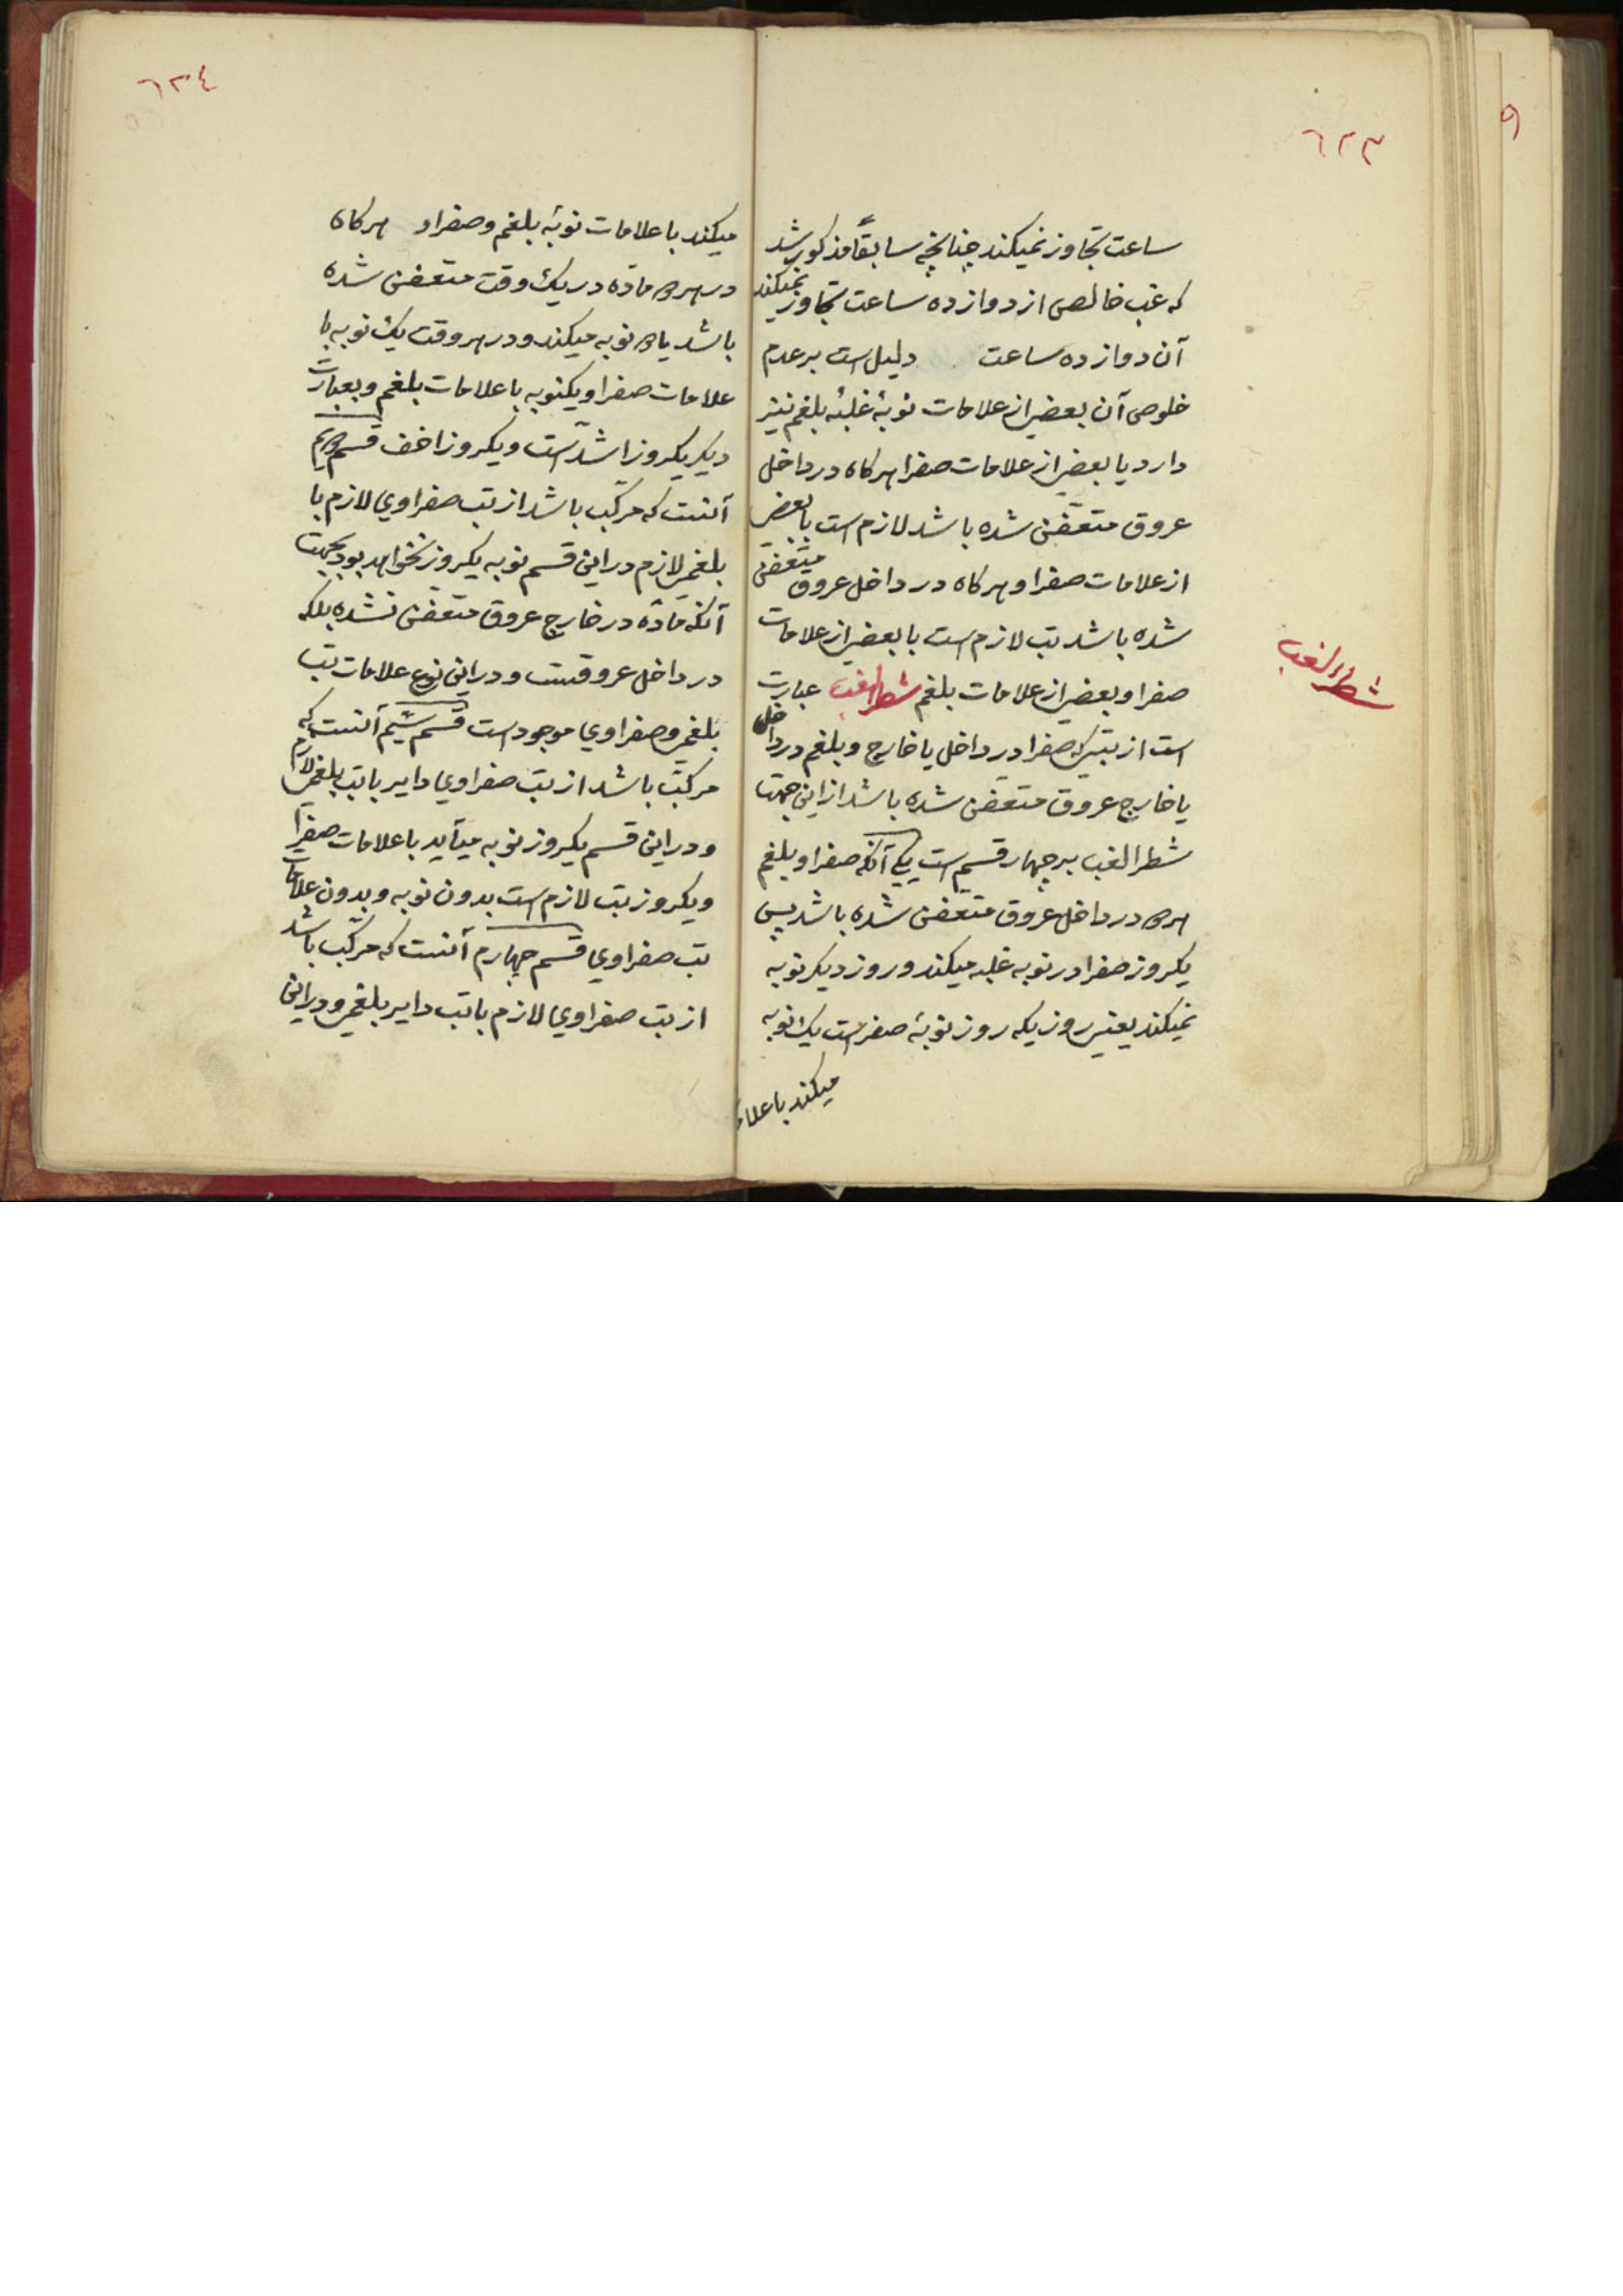 ٦٢٣
ساعت تجاوز نمیکند چنانچه سابقاً مذکور شد
که غب خالص از دوازده ساعت تجاوز نمیکند
آن دوازده ساعت دلیل است بر عدم
خلوص آن بعضی از علامات نوبهٔ غلبهٔ بلغم نیز
دارد یا بعضی از علامات صفرا هرکاه در داخل
عروق متعفن شده باشد لازم است با بعضی
از علامات صفرا و هرکاه در داخل عروق متعفن
شده باشد تب لازم است با بعضی از علامات
صفرا و بعضی از علامات بلغم شطرالغب عبارت
است از تبی که صفرا در داخل یا خارج و بلغم در داخل
یا خارج عروق متعفن شده باشد از این جهت
شطر الغب بر چهار قسم است یکی آنکه صفرا و بلغم
هر دو در داخل عروق متعفن شده باشد پس
یکروز صفرا در نوبه غلبه میکند و روز دیکر نوبه
نمیکند یعنی روزیکه روز نوبهٔ صفراست یک نوبه
میکند با علا
شطر الغب
٩
٦٢٤
میکند با علامات نوبهٔ بلغم و صفرا و هرکاه
در هر دو ماده در یک وقت متعفن شده
باشد یا دو نوبه میکند و در هر وقت یک نوبه با
علامات صفرا و یکنوبه با علامات بلغم و بعبارت
دیکر یکروز اشد است و یکروز اخف قسم دویم
آنست که مرکب باشد از تب صفراوی لازم با
بلغمی لازم در این قسم نوبه یکروز نخواهد بود بجهت
آنکه ماده در خارج عروق متعفن نشده بلکه
در داخل عروقست و در این نوع علامات تب
بلغمی و صفراوی موجود است قسم سیم آنست که
مرکب باشد از تب صفراوی دایر با تب بلغمی لازم
و در این قسم یکروز نوبه میآید با علامات صفرا
و یکروز تب لازم است بدون نوبه و بدون علامات
تب صفراوی قسم چهارم آنست که مرکب باشد
از تب صفراوی لازم با تب دایر بلغمی و در این